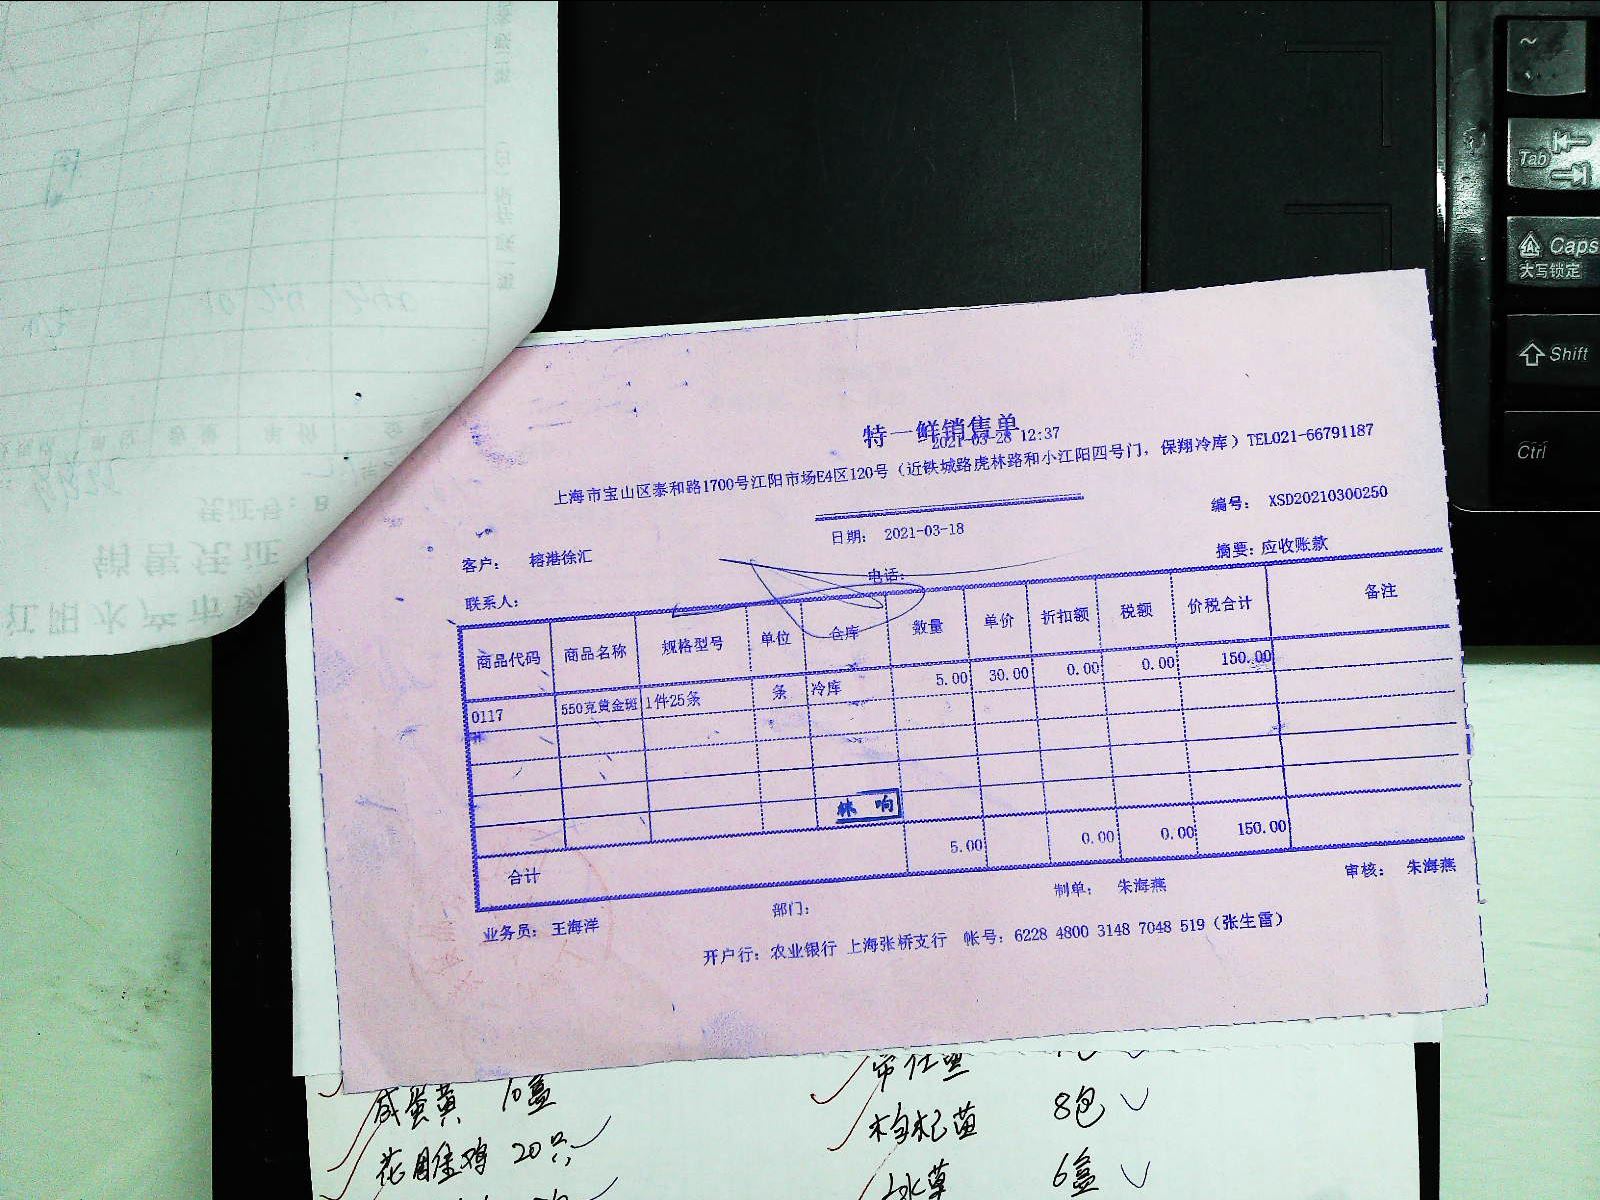 特一鲜销售单
2021-03-28 12:37
上海市宝山区泰和路1700号江阳市场E4区120号（近铁城路虎林路和小江阳四号门，保翔冷库）TEL021-66791187
编号： XSD20210300250
日期： 2021-03-18
客户： 榕港徐汇
摘要：应收账款
联系人：
电话：
商品代码 商品名称 规格型号 单位 仓库 数量 单价 折扣额 税额 价税合计 备注
0117 550克黄金斑 1件25条 条 冷库 5.00 30.00 0.00 0.00 150.00
林 响
合计 5.00 0.00 0.00 150.00
业务员： 王海洋 部门： 制单： 朱海燕 审核： 朱海燕
开户行：农业银行 上海张桥支行 帐号：6228 4800 3148 7048 519（张生雷）
咸蛋黄 10盒
花雕鸡 20只
枸杞苗 8包
冰草 6盒
销售凭证
江阳水产市场
~
Tab
Caps
大写锁定
Shift
Ctrl